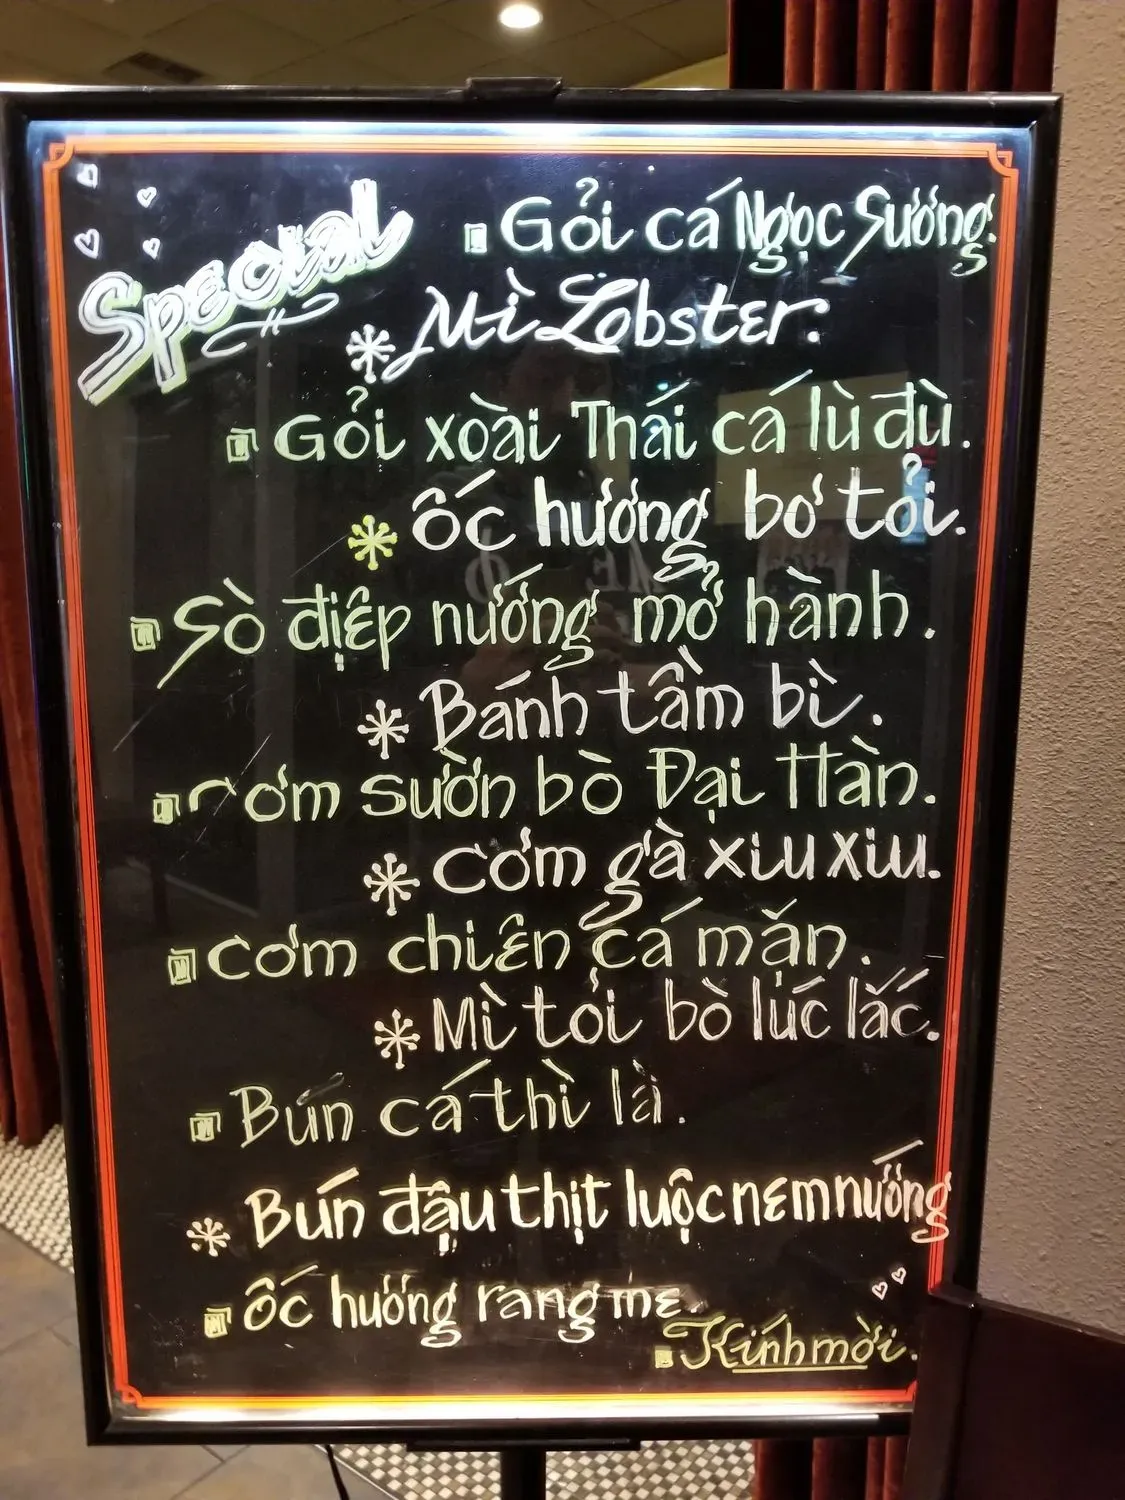 Special
Gỏi cá Ngọc Sương.
Mì Lobster.
Gỏi xoài Thái cá lù đù.
ốc hương bơ tỏi.
Sò điệp nướng mở hành.
Bánh tầm bì.
Cơm sườn bò Đại Hàn.
cơm gà xiu xiu.
cơm chiên cá mặn.
Mì tỏi bò lúc lắc.
Bún cá thì là.
Bún đậu thịt luộc nem nướng
ốc hương rang me.
Kính mời.